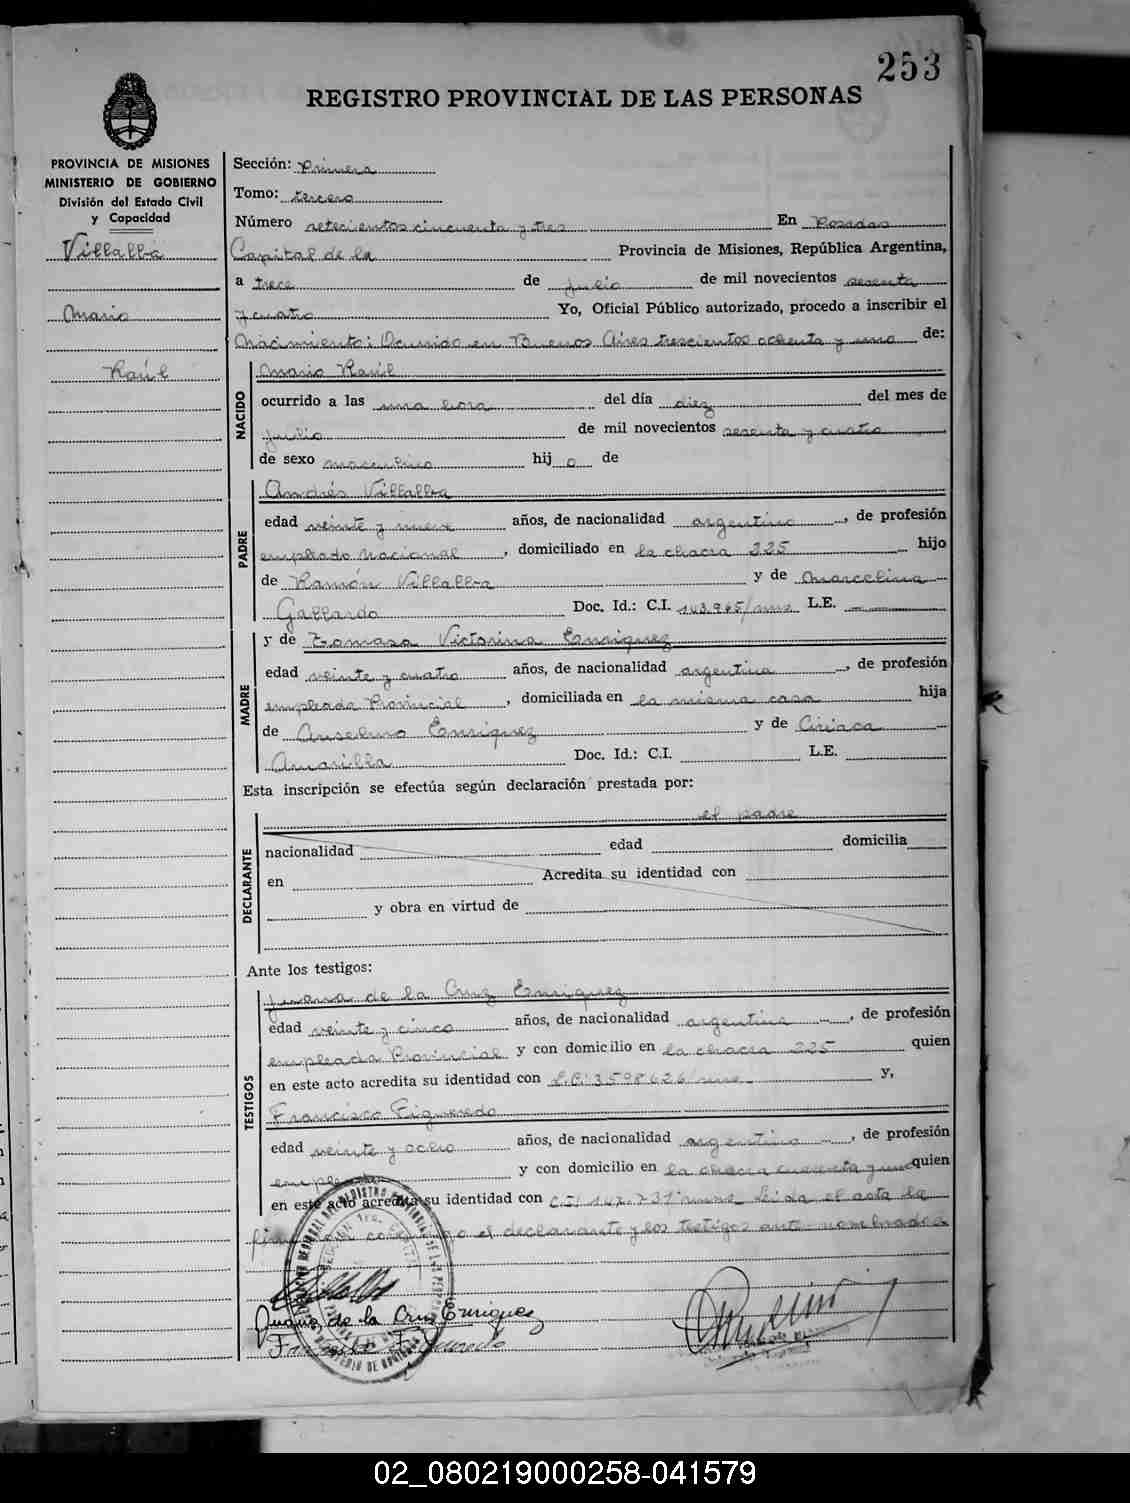 253
REGISTRO PROVINCIAL DE LAS PERSONAS
PROVINCIA DE MISIONES
MINISTERIO DE GOBIERNO
División del Estado Civil
y Capacidad
Villalba
Mario
Raúl
Sección: Primera
Tomo: tercero
Número setecientos cincuenta y tres En Posadas
Capital de la Provincia de Misiones, República Argentina,
a trece de julio de mil novecientos sesenta
y cuatro Yo, Oficial Público autorizado, procedo a inscribir el
Nacimiento: Ocurrido en Buenos Aires trescientos ochenta y uno de:
NACIDO
Mario Raúl
ocurrido a las una hora del día diez del mes de
julio de mil novecientos sesenta y cuatro
de sexo masculino hij o de
PADRE
Andrés Villalba
edad veinte y nueve años, de nacionalidad argentino, de profesión
empleado Nacional, domiciliado en la chacra 225 hijo
de Ramón Villalba y de Marcelina
Gallardo Doc. Id.: C.I. 143.965/mnes L.E.
MADRE
y de Tomasa Victorina Enriquez
edad veinte y cuatro años, de nacionalidad argentina, de profesión
empleada Provincial, domiciliada en la misma casa hija
de Anselmo Enriquez y de Ciriaca
Amarilla Doc. Id.: C.I. L.E.
Esta inscripción se efectúa según declaración prestada por:
DECLARANTE
el padre
nacionalidad edad domicilia
en Acredita su identidad con
y obra en virtud de
Ante los testigos:
TESTIGOS
Juana de la Cruz Enriquez
edad veinte y cinco años, de nacionalidad argentina, de profesión
empleada Provincial y con domicilio en la chacra 225 quien
en este acto acredita su identidad con L.C. 3598626/mnes y,
Francisco Figueredo
edad veinte y ocho años, de nacionalidad argentino, de profesión
y con domicilio en la chacra cuarenta y quien
en este acto acredita su identidad con C.I. mnes Leida el acta la
el declarante y los testigos ante nombrados
Juana de la Cruz Enriquez
Francisco Figueredo
02_080219000258-041579